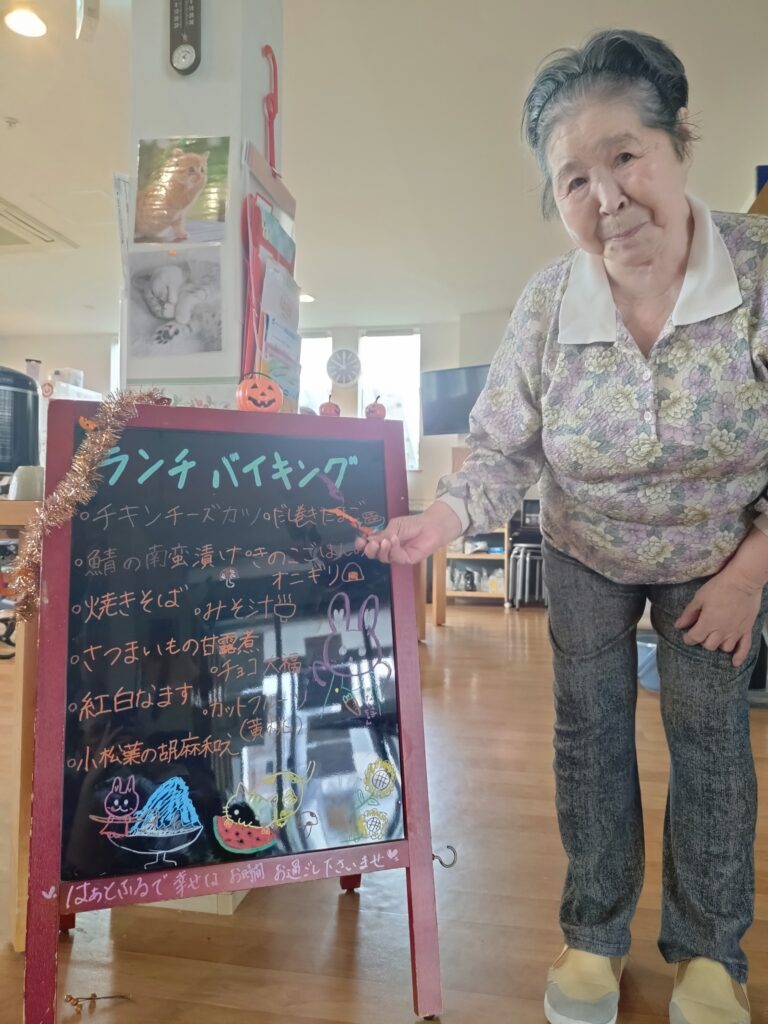 ランチ バイキング
○チキンチーズカツ ○だし巻きたまご
○鯖の南蛮漬け ○きのこごはん
オニギリ
○焼きそば ○みそ汁
○さつまいもの甘露煮
○チョコ大福
○紅白なます ○カットフルーツ
(黄桃)
○小松菜の胡麻和え
はぁとふるで 幸せな お時間 お過ごし下さいませ